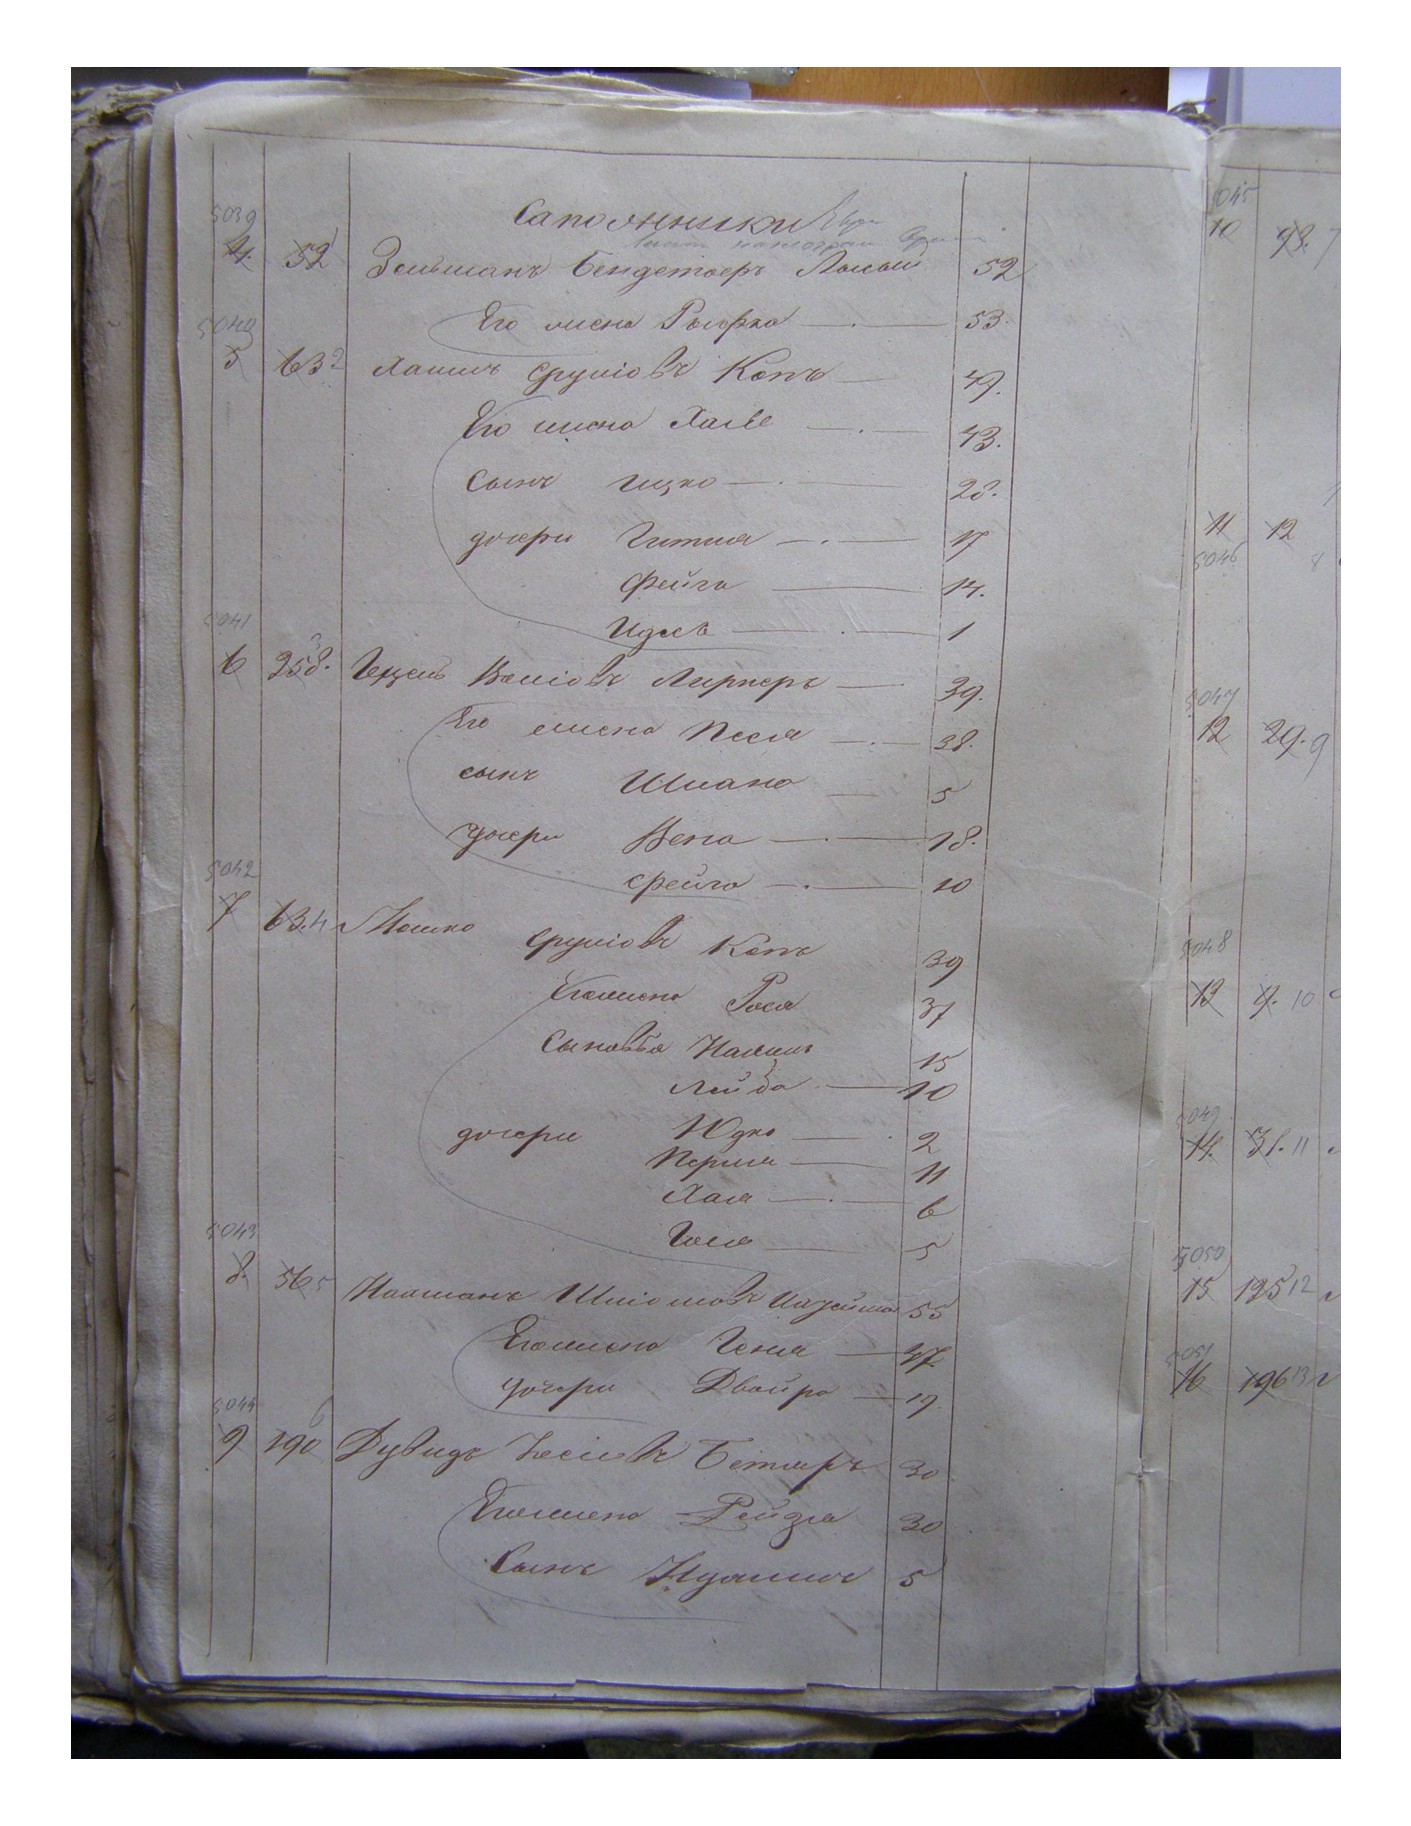 Сапожники
5039
4. 52 Зельманъ Бендетовъ 52
Его жена Рыфка 53.
5040
5 63 2 Хаимъ Сруліовъ Копъ 49.
Его жена Хаье 43.
Сынъ Ицко 28.
дочери Гитля 17
Фейга 14.
Идесъ 1
5041
6 258. 3 Гецель Веліовъ Лернеръ 39.
Его жена Песя 38.
сынъ Шмако 5
дочери Вена 18.
Фейга 10
5042
7 63. 4 Мошко Сруліовъ Копъ 39
Его жена Рося 37
Сыновья Нахимъ 15
Лейба 10
дочери Юдко 2
Перля 11
Хая 6
Гося 5
5043
8. 56 5 Нахманъ Шліомовъ 55
Его жена Геня 47.
дочери Двойра 19.
5044
9 190 6 Дувидъ Іосіовъ 30
Его жена Рейзя 30
Сынъ 5
5045
10 98. 7
11 12
5046
8
5047
12 29. 9
5048
13 9. 10
5049
14. 31. 11
5050
15 125 12
5051
16 196 13